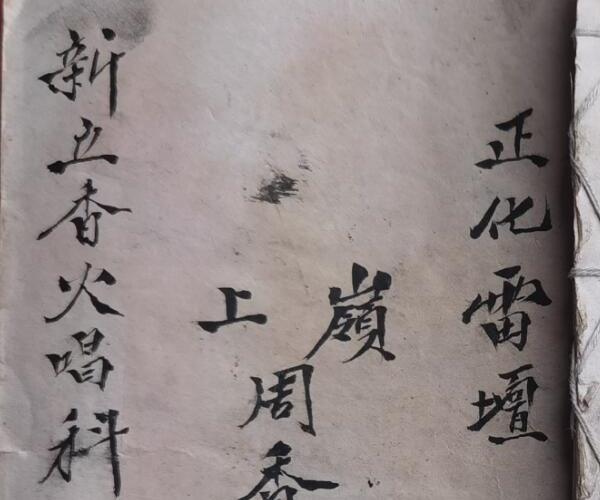 正化雷壇
嶺上
周香
新立香火唱科